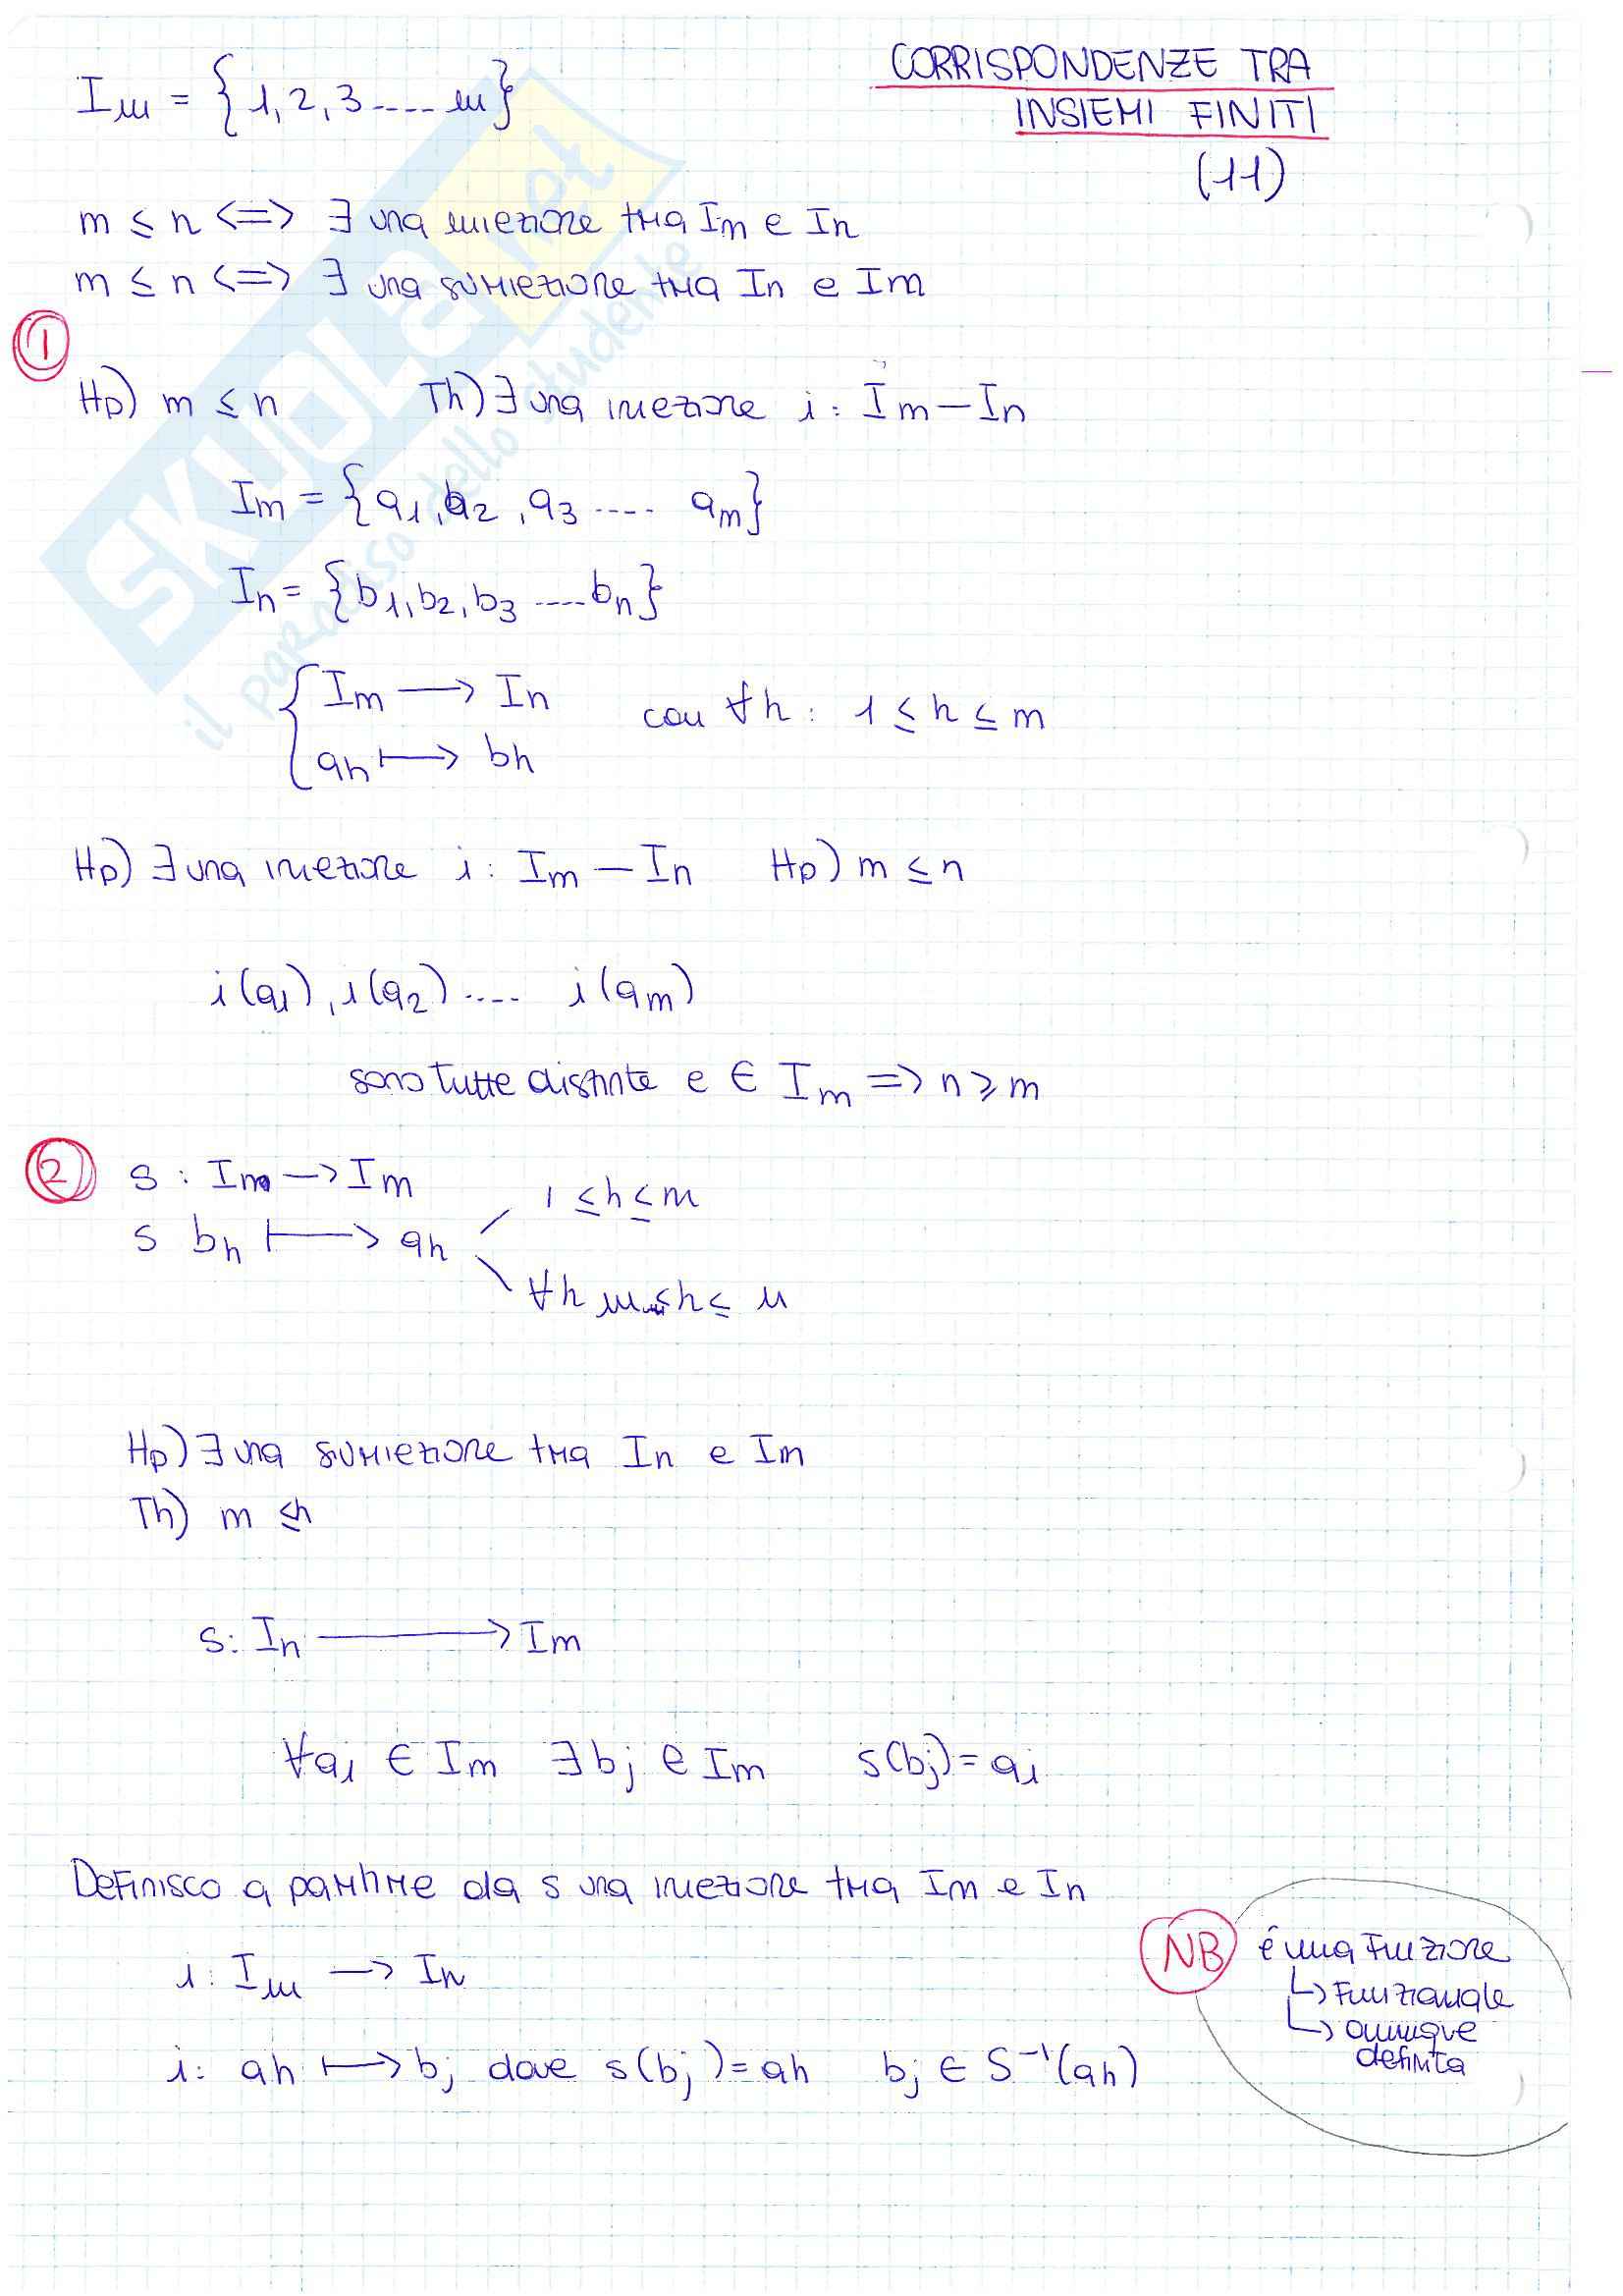 CORRISPONDENZE TRA
INSIEMI FINITI
(11)
Im = {1, 2, 3 .... m}
m ≤ n <=> ∃ una iniezione tra Im e In
m ≤ n <=> ∃ una suriezione tra In e Im
①
Hp) m ≤ n Th) ∃ una iniezione i : Im — In
Im = {a1, a2, a3 .... am}
In = {b1, b2, b3 .... bn}
{ Im → In con ∀h : 1 ≤ h ≤ m
ah ↦ bh
Hp) ∃ una iniezione i : Im — In Hp) m ≤ n
i(a1), i(a2) .... i(am)
sono tutte distinte e ∈ Im => n ≥ m
② s : Im → Im
1 ≤ h ≤ m
s bh ↦ ah
∀h m ≤ h ≤ n
Hp) ∃ una suriezione tra In e Im
Th) m ≤ n
s: In → Im
∀ai ∈ Im ∃ bj ∈ Im s(bj) = ai
Definisco a partire da s una iniezione tra Im e In
i: Im → In
i: ah ↦ bj dove s(bj) = ah bj ∈ S⁻¹(ah)
NB è una funzione
↳ funzionale
↳ ovunque
definita
SKUOLA.net
il paradiso dello studente